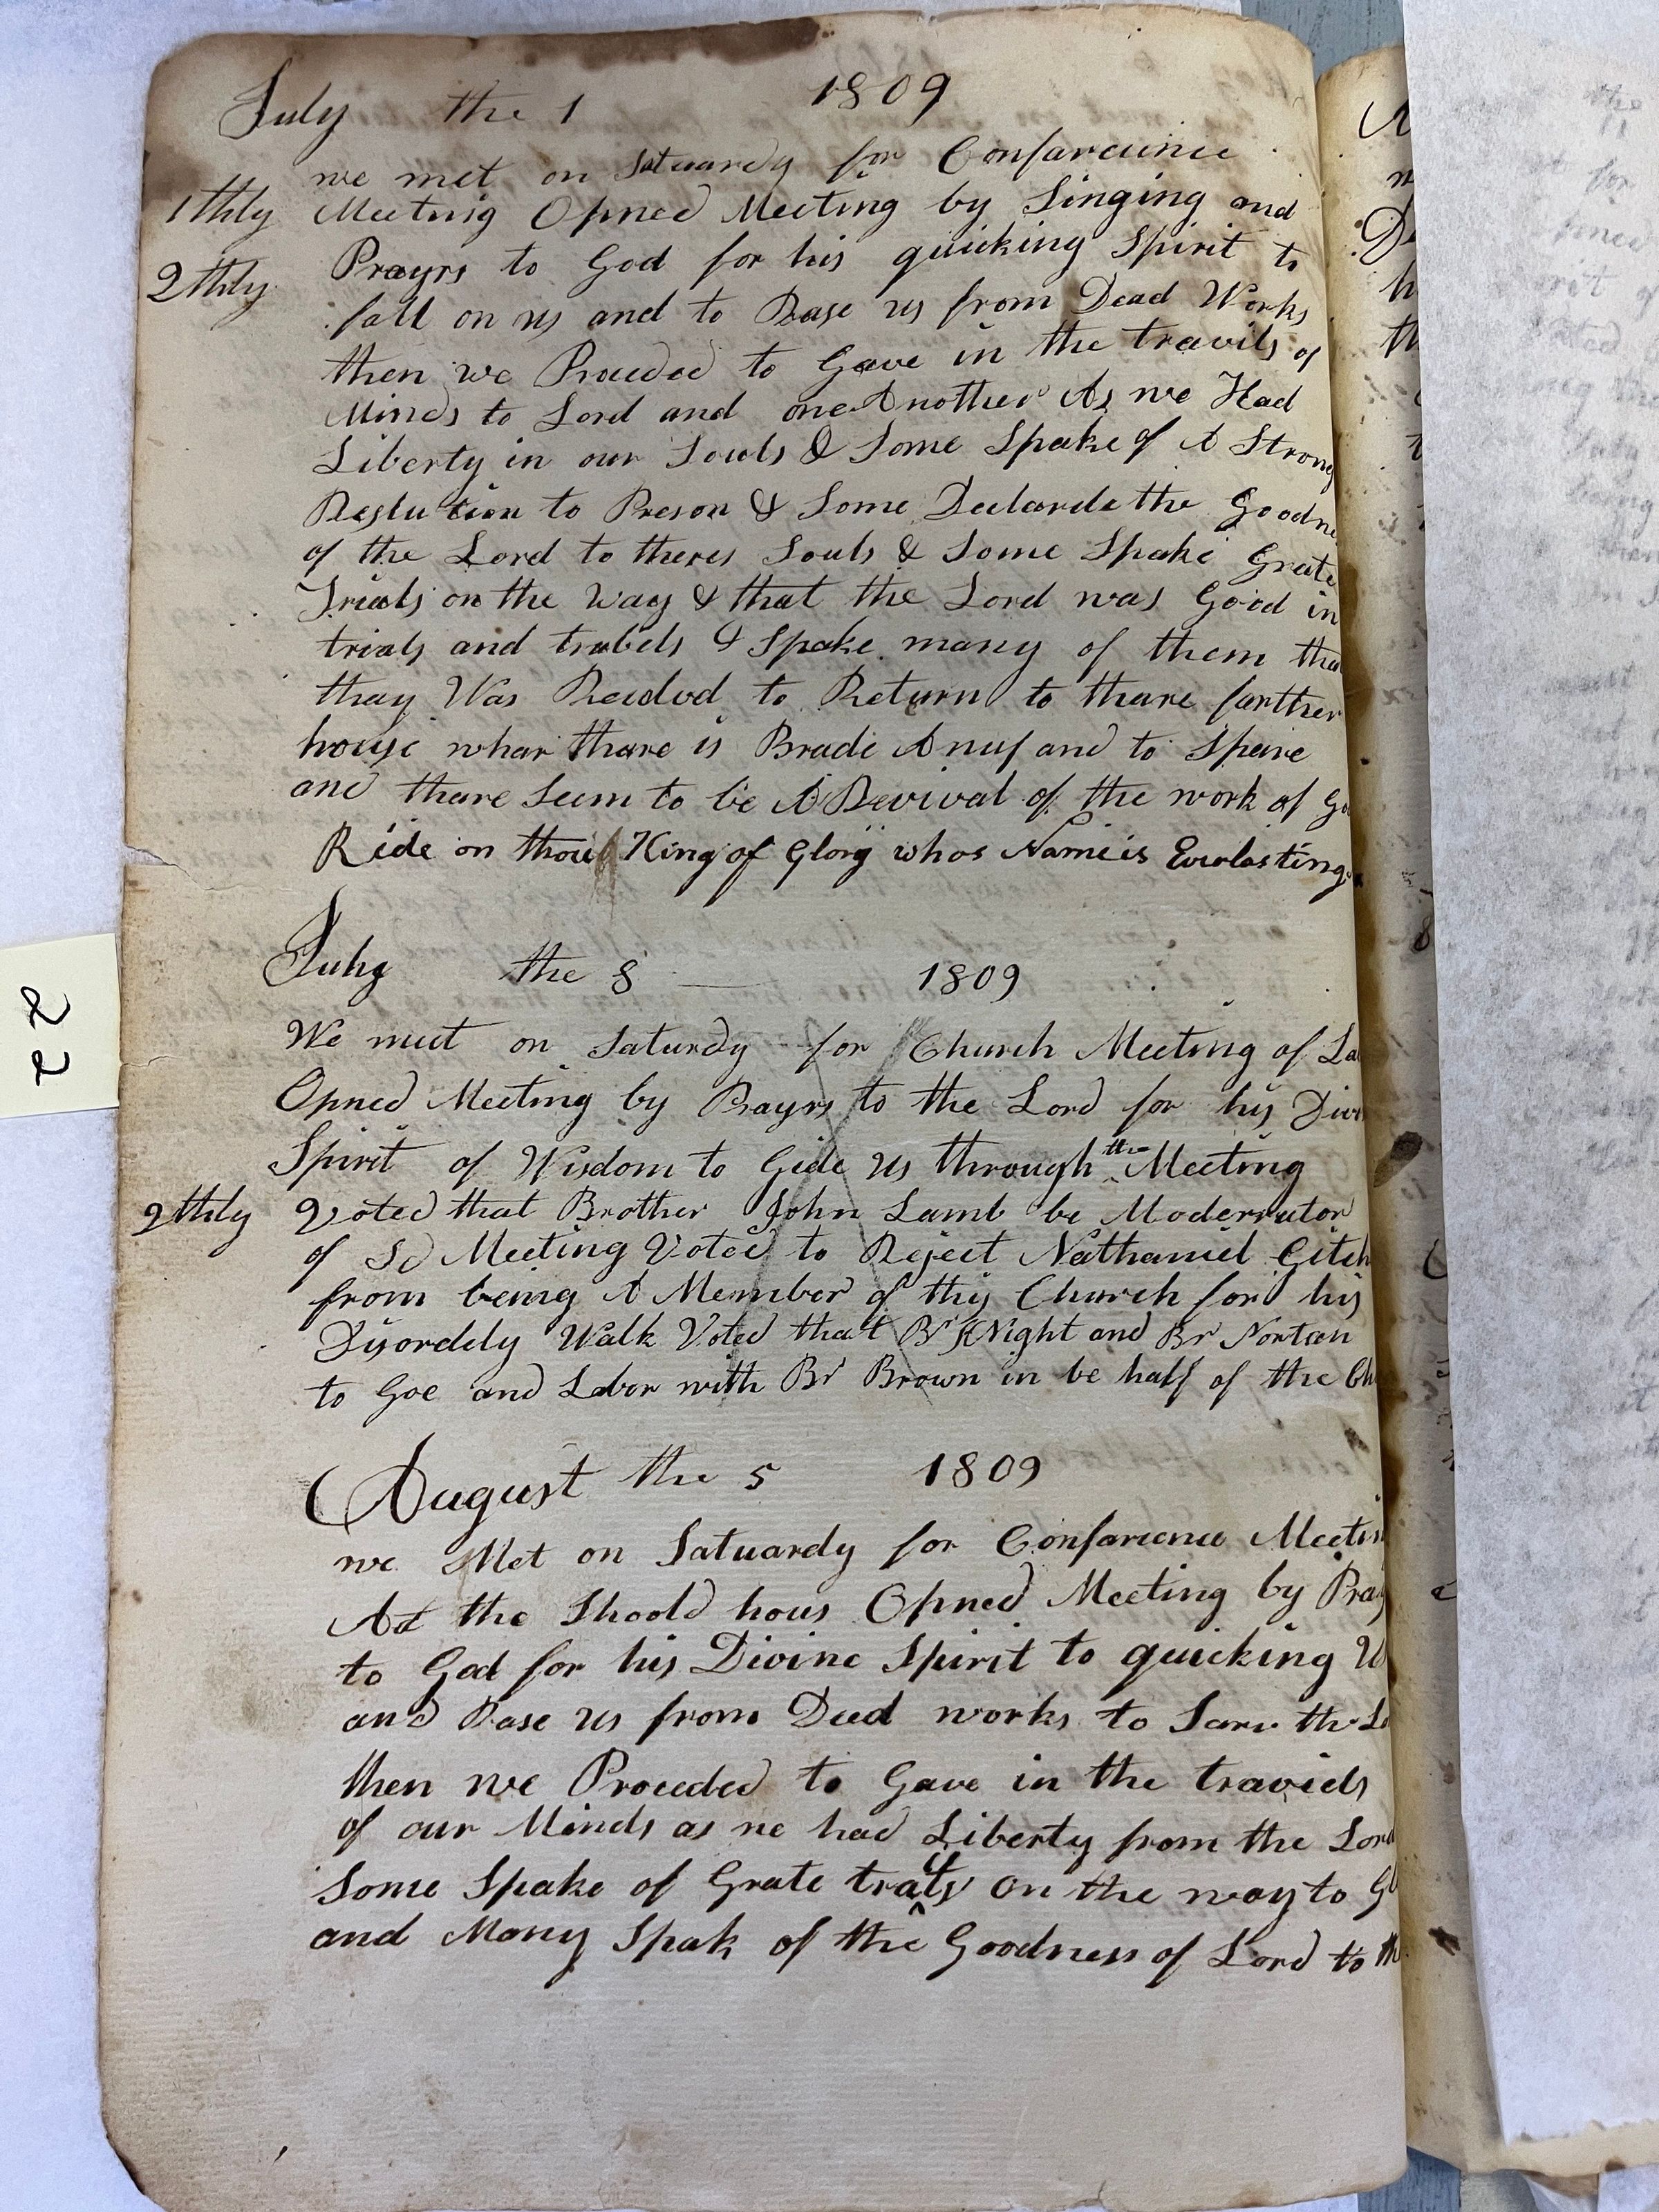 July the 1 1809
we met on Satuardy for Confarcince
1thly Meeting Opned Meeting by Singing and
2thly Prayrs to God for his quicking Spirit to
fall on us and to Rase us from Dead Works
then we Proceded to Gave in the travils of
Minds to Lord and one Another As we Had
Liberty in our Souls & Some Spake of A Strong
Reslution to Preson & Some Declarde the Goodne
of the Lord to theres Souls & Some Spake Grate
Trials on the Way & that the Lord was Good in
trials and trubels & Spake many of them tha
thay Was Resdvd to Return to thare farther
house whar thare is Brade Anuf and to Spare
and thare Seem to be A Revival of the work of Go
Ride on thou King of Glory whos Name is Everlasting
July the 8 1809
We meet on Saturdy for Church Meeting of La
Opned Meeting by Prayrs to the Lord for his Divi
Spirit of Wisdom to Gide us through the Meeting
2thly Voted that Brother John Lamb be Moderrator
of Sd Meeting Voted to Reject Nathaniel Citch
from being A Member of this Church for his
Disordely Walk Voted that Br KNight and Br Nortan
to Goe and Labor with Br Brown in be half of the Ch
August the 5 1809
we Met on Satuardy for Confarience Meetin
At the Shoold hous Opned Meeting by Pray
to God for his Divine Spirit to quicking U
and Rase us from Deed works to Sarv the Lo
then we Proceded to Gave in the traviels
of our Minds as we had Liberty from the Lord
Some Spake of Grate trals on the way to Gl
and Many Spak of the Goodness of Lord to th
22